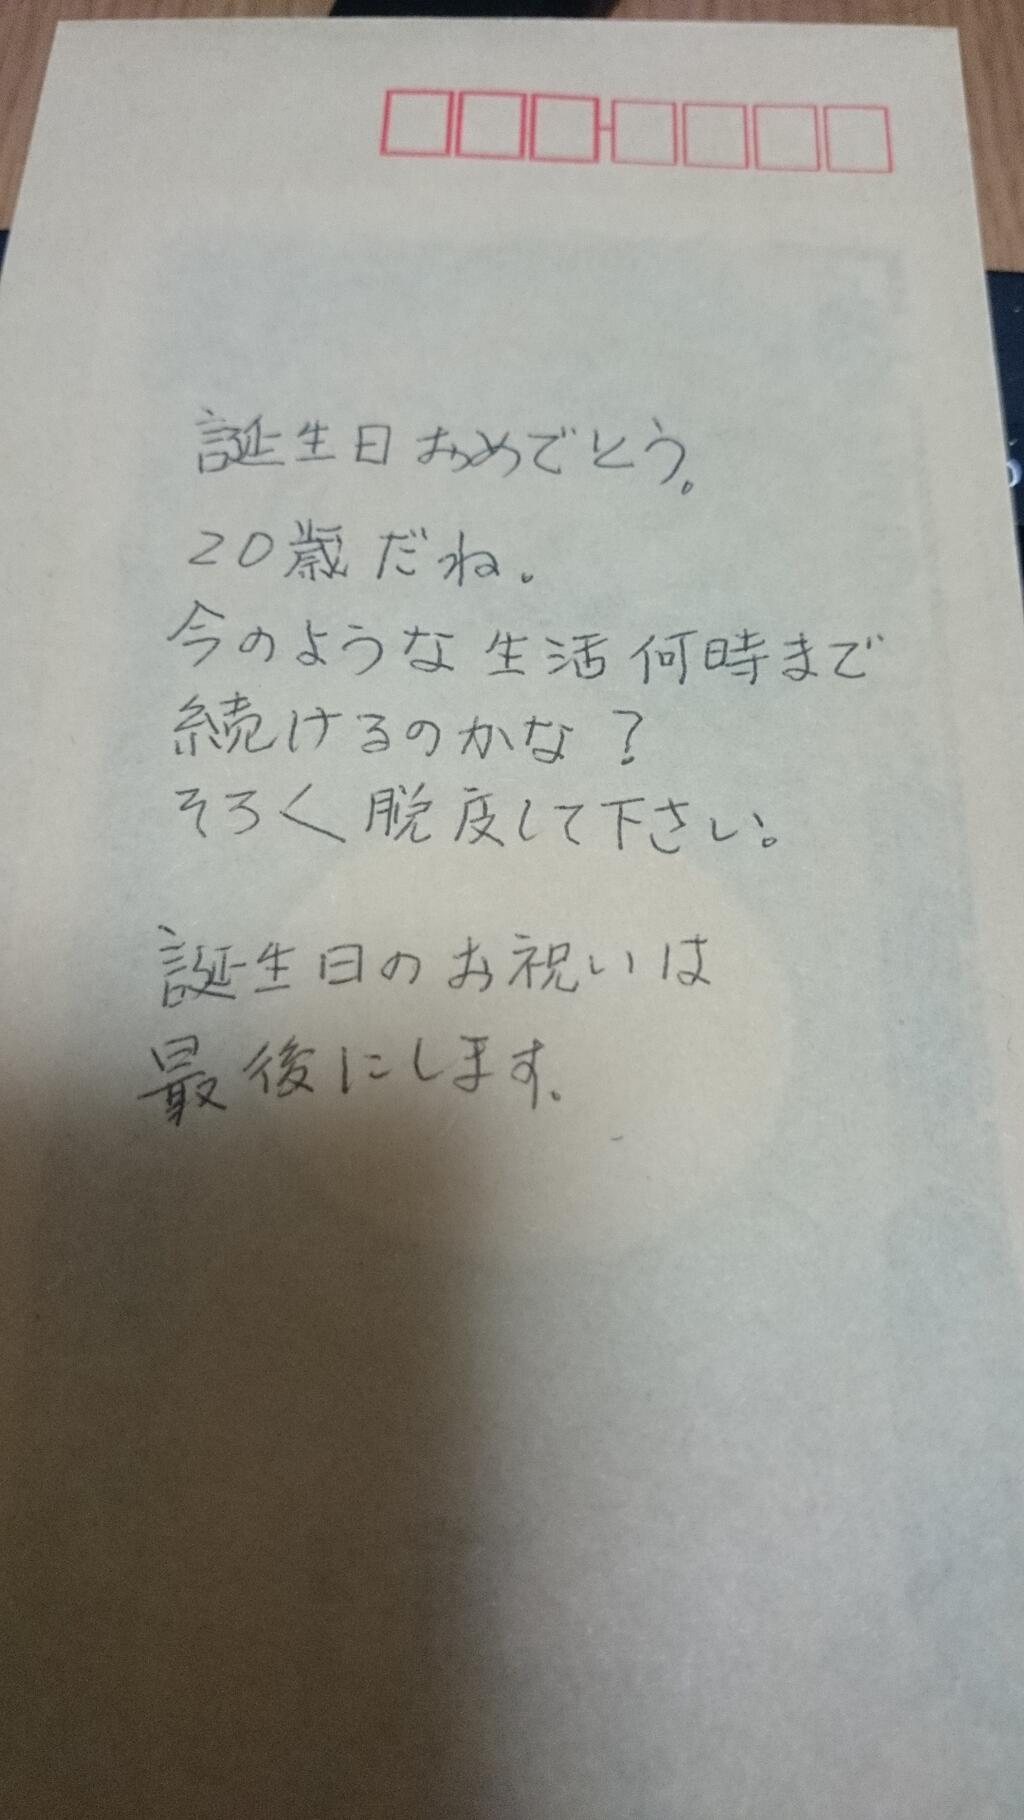 誕生日おめでとう。
20歳だね。
今のような生活何時まで
続けるのかな？
そろ〱脱皮して下さい。
誕生日のお祝いは
最後にします。